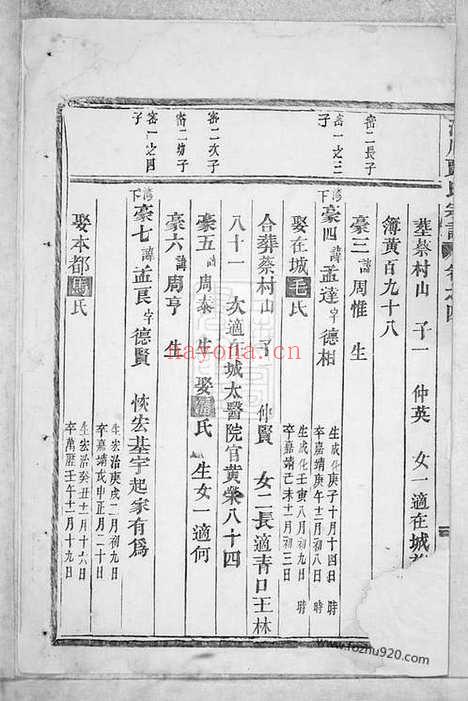 葬蔡村山 子一 仲英 女一適在城
簿黃百九十八
密二長子
豪三 諱周惟 生
密一之三子
豪四 諱孟達 字德相
生成化庚子十月十四日 時
卒嘉靖庚午十二月初八日 時
娶在城毛氏
生成化壬寅八月初九日 時
卒嘉靖己未十一月初三日
合葬蔡村山 子一 仲賢 女二長適青口王林
八十一 次適在城太醫院官黃榮八十四
密二次子
豪五 諱周泰 生 娶 氏 生女一適何
密二幼子
豪六 諱周亨 生
密一之四子
豪七 諱孟良 字德賢 恢宏基宇起家有爲
生宏治庚戌二月初九日
卒嘉靖戊申正月二十日
娶本都馬氏
生宏治癸丑十一月十六日
卒萬曆壬午十二月十九日
nayona.cn
www.fozhu920.com